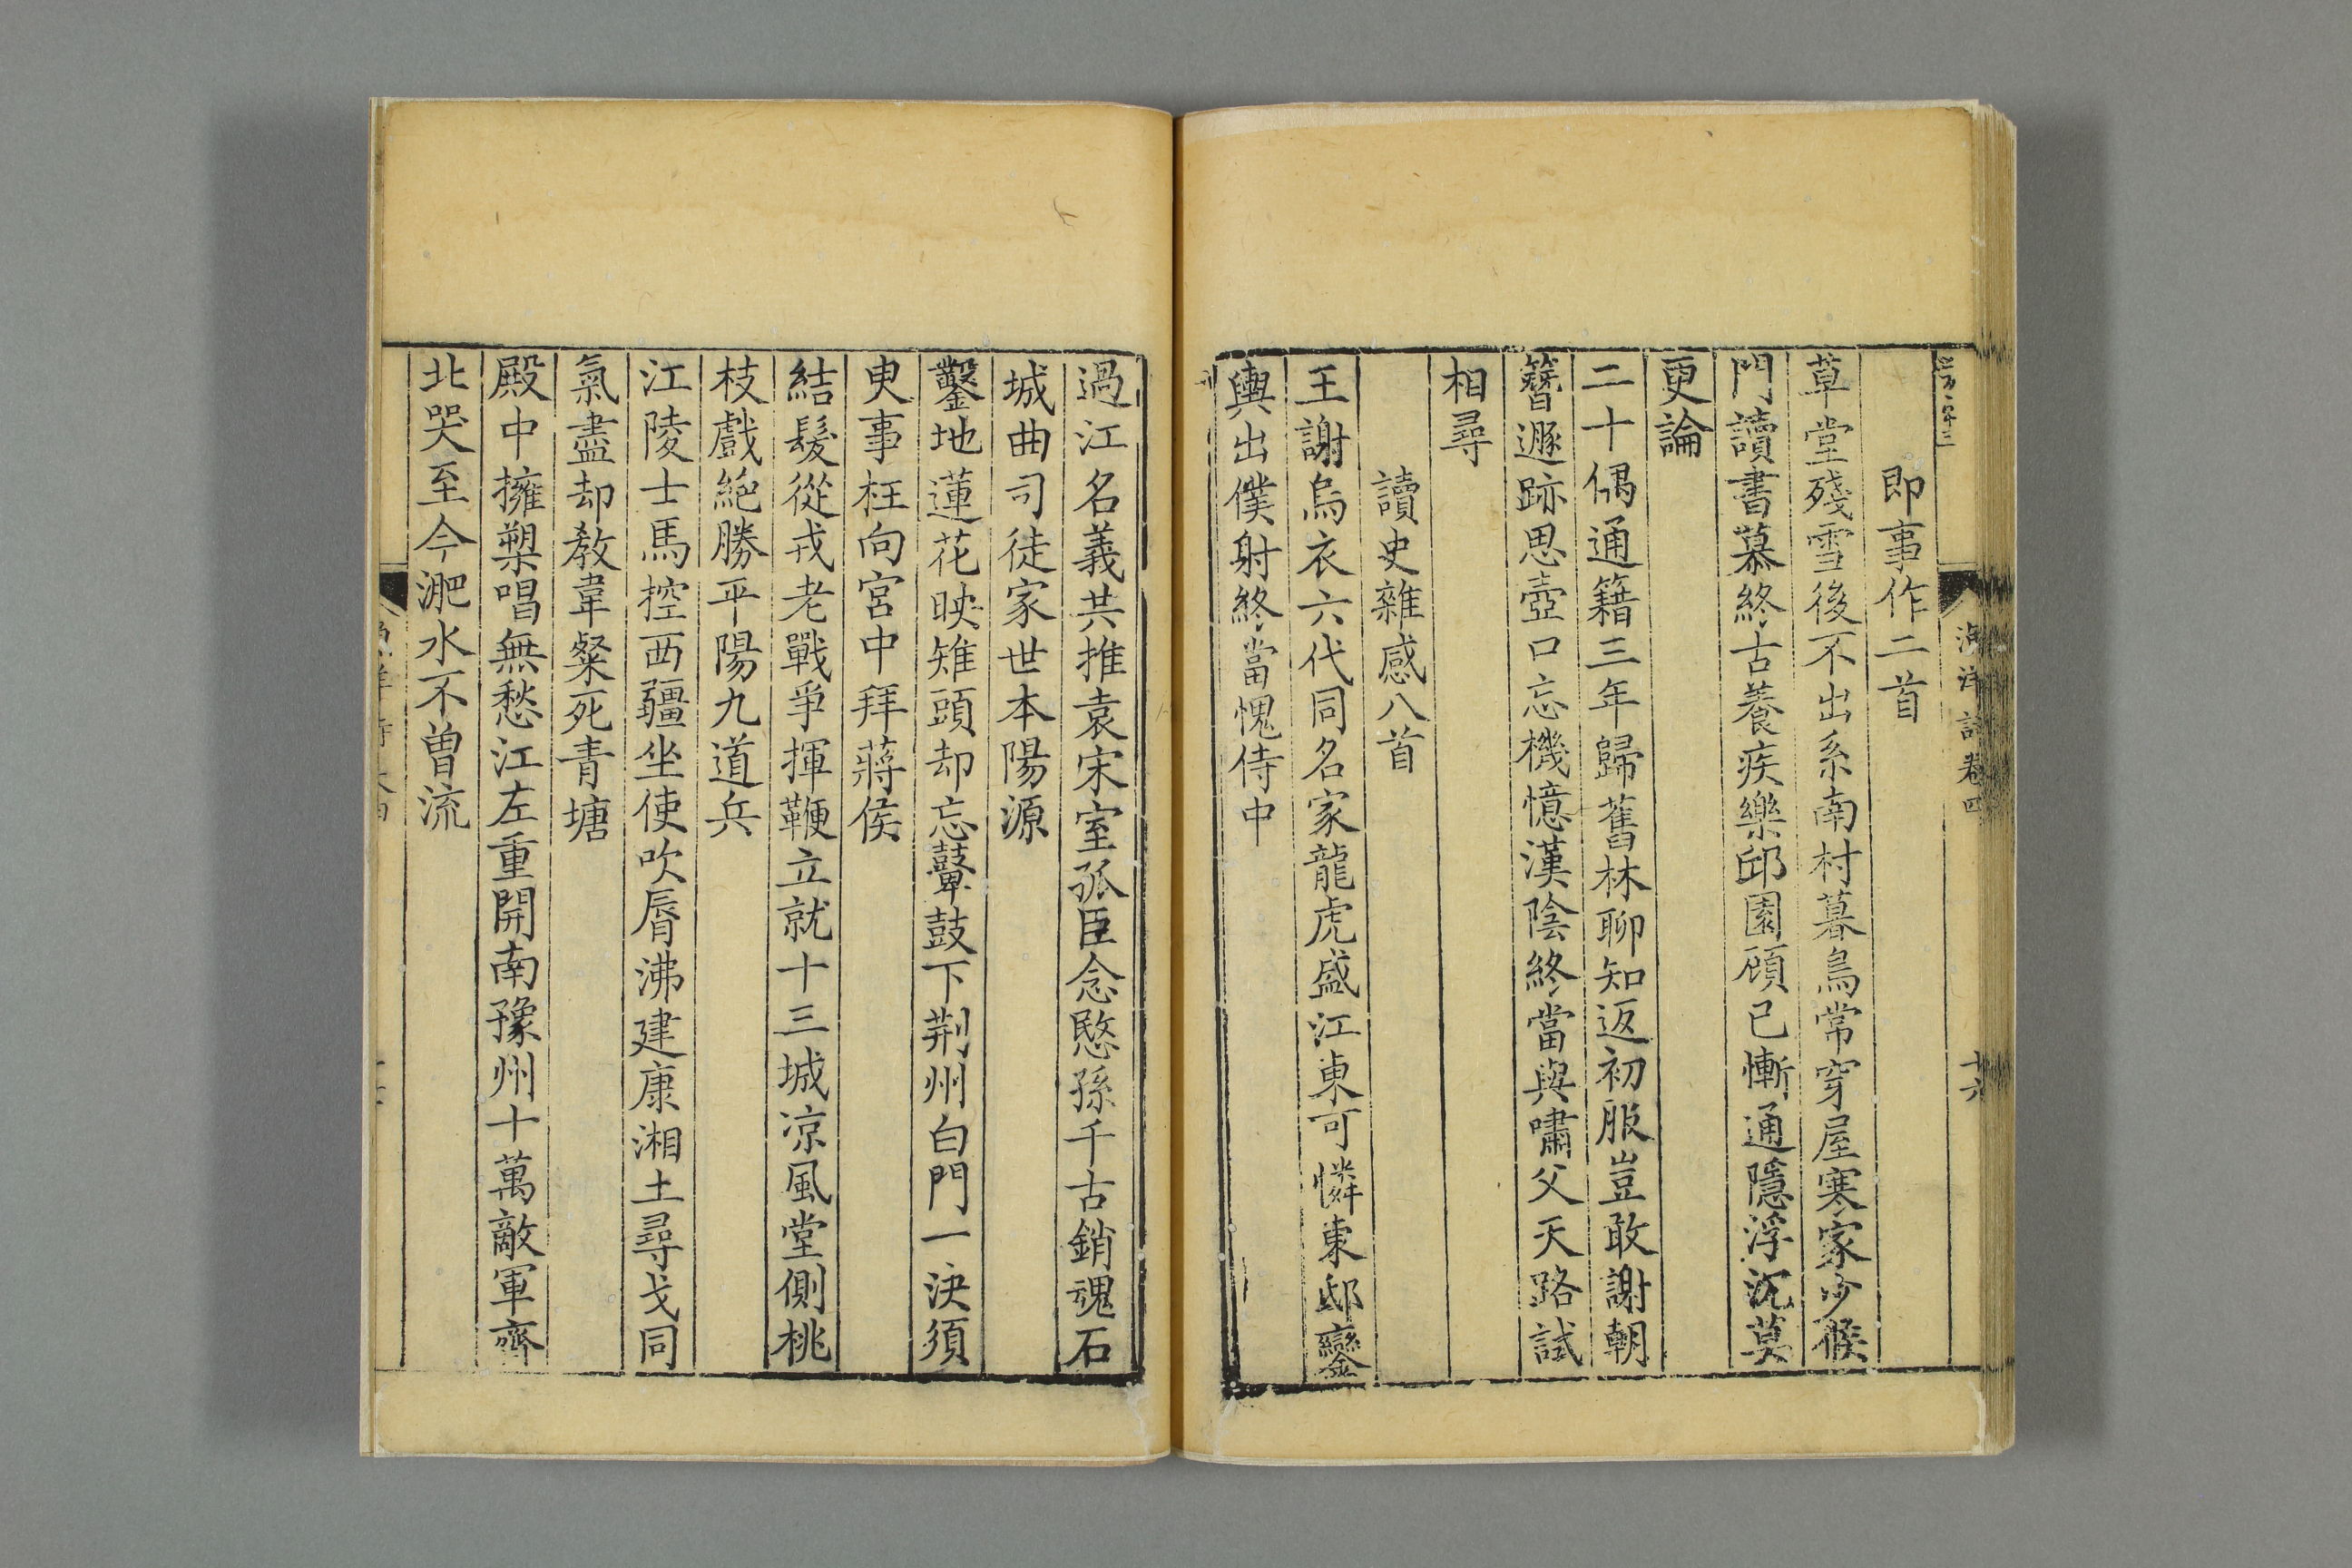 即事作二首
草堂殘雪後不出系南村暮鳥常穿屋寒家少候
門讀書慕終古養疾樂邱園頎已慚通隱浮沉莫
更論
二十偶通籍三年歸舊林聊知返初服豈敢謝朝
簪遯跡思壺口忘機憶漢陰終當與嘯父天路試
相尋
讀史雜感八首
王謝烏衣六代同名家龍虎盛江東可憐東邸鑾
輿出僕射終當愧侍中
過江名義共推袁宋室孤臣念愍孫千古銷魂石
城曲司徒家世本陽源
鑿地蓮花映雉頭却忘鼙鼓下荆州白門一决須
臾事枉向宮中拜蔣侯
結髮從戎老戰爭揮鞭立就十三城凉風堂側桃
枝戲絕勝平陽九道兵
江陵士馬控西疆坐使吹脣沸建康湘土尋戈同
氣盡却教韋粲死青塘
殿中擁槊唱無愁江左重開南豫州十萬敵軍齊
北哭至今淝水不曾流
詩卷四
十六